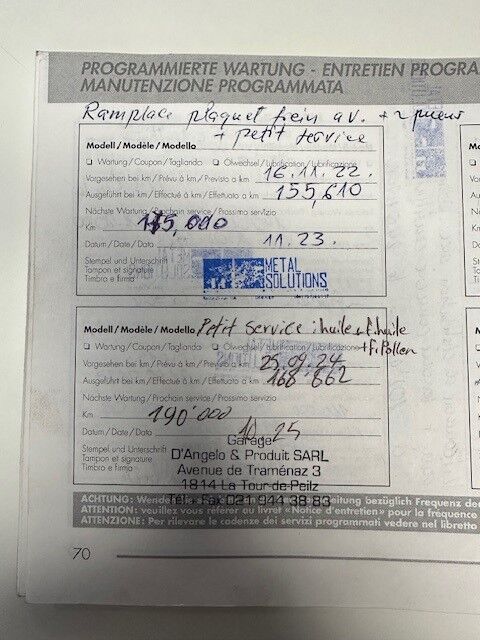 PROGRAMMIERTE WARTUNG - ENTRETIEN PROGRA
MANUTENZIONE PROGRAMMATA
Ramplace plaquet frein av. + 2 pneus
+ petit service
Modell / Modèle / Modello
Wartung / Coupon / Tagliando Ölwechsel / Lubrification / Lubrificazione
Vorgesehen bei km / Prévu à km / Previsto a km 16.11.22.
Ausgeführt bei km / Effectué à km / Effettuato a km 155,610
Nächste Wartung / Prochain service / Prossimo servizio
Km
Datum / Date / Data 11.23.
Stempel und Unterschrift
Tampon et signature
Timbro e firma
METAL
SOLUTIONS
Modell / Modèle / Modello Petit service : huile + f.huile
+ Fi Pollen
Wartung / Coupon / Tagliando Ölwechsel / Lubrification / Lubrificazione
Vorgesehen bei km / Prévu à km / Previsto a km 25.09.24
Ausgeführt bei km / Effectué à km / Effettuato a km 168 862
Nächste Wartung / Prochain service / Prossimo servizio
Km 190'000
Datum / Date / Data 10.25
Stempel und Unterschrift
Tampon et signature
Timbro e firma
Garage
D'Angelo & Produit SARL
Avenue de Traménaz 3
1814 La Tour-de-Peilz
Tél + Fax 021 944 38 83
ACHTUNG: Wende
eitung bezüglich Frequenz de
ATTENTION: veuillez vous référer au livret «Notice d'entretien» pour la fréquence
ATTENZIONE: Per rilevare le cadenze dei servizi programmati vedere nel libretto
70